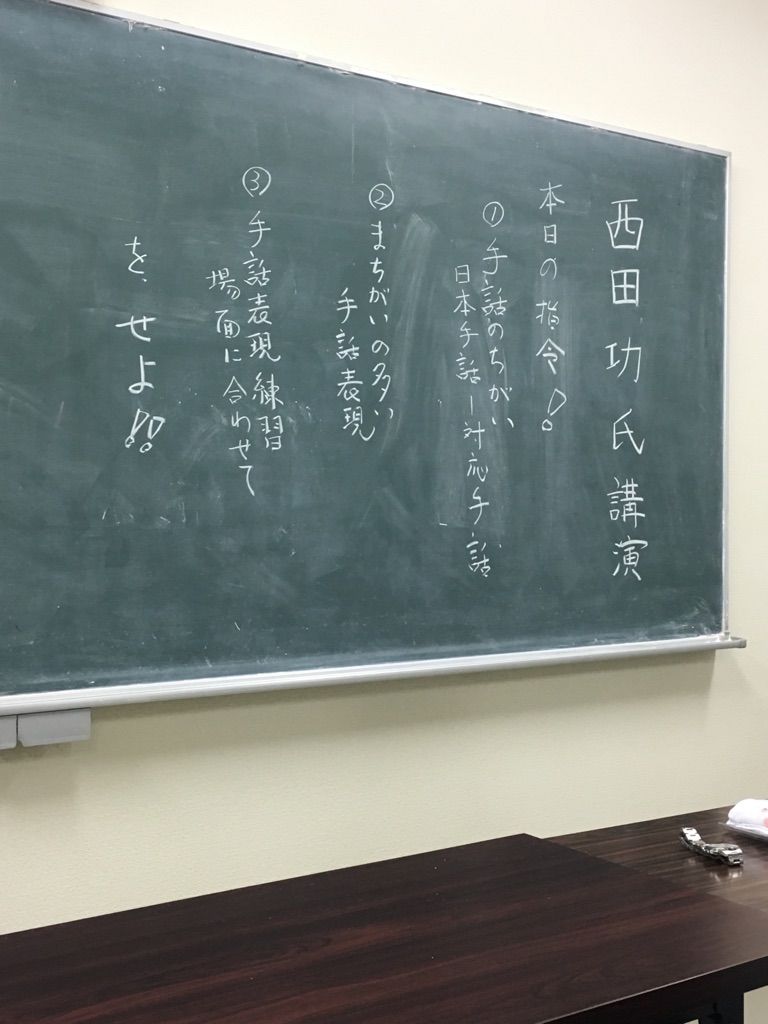 西田功氏講演
本日の指令!
①手話のちがい
日本手話ー対応手話
②まちがいの多い
手話表現
③手話表現練習
場面に合わせて
を、せよ!!